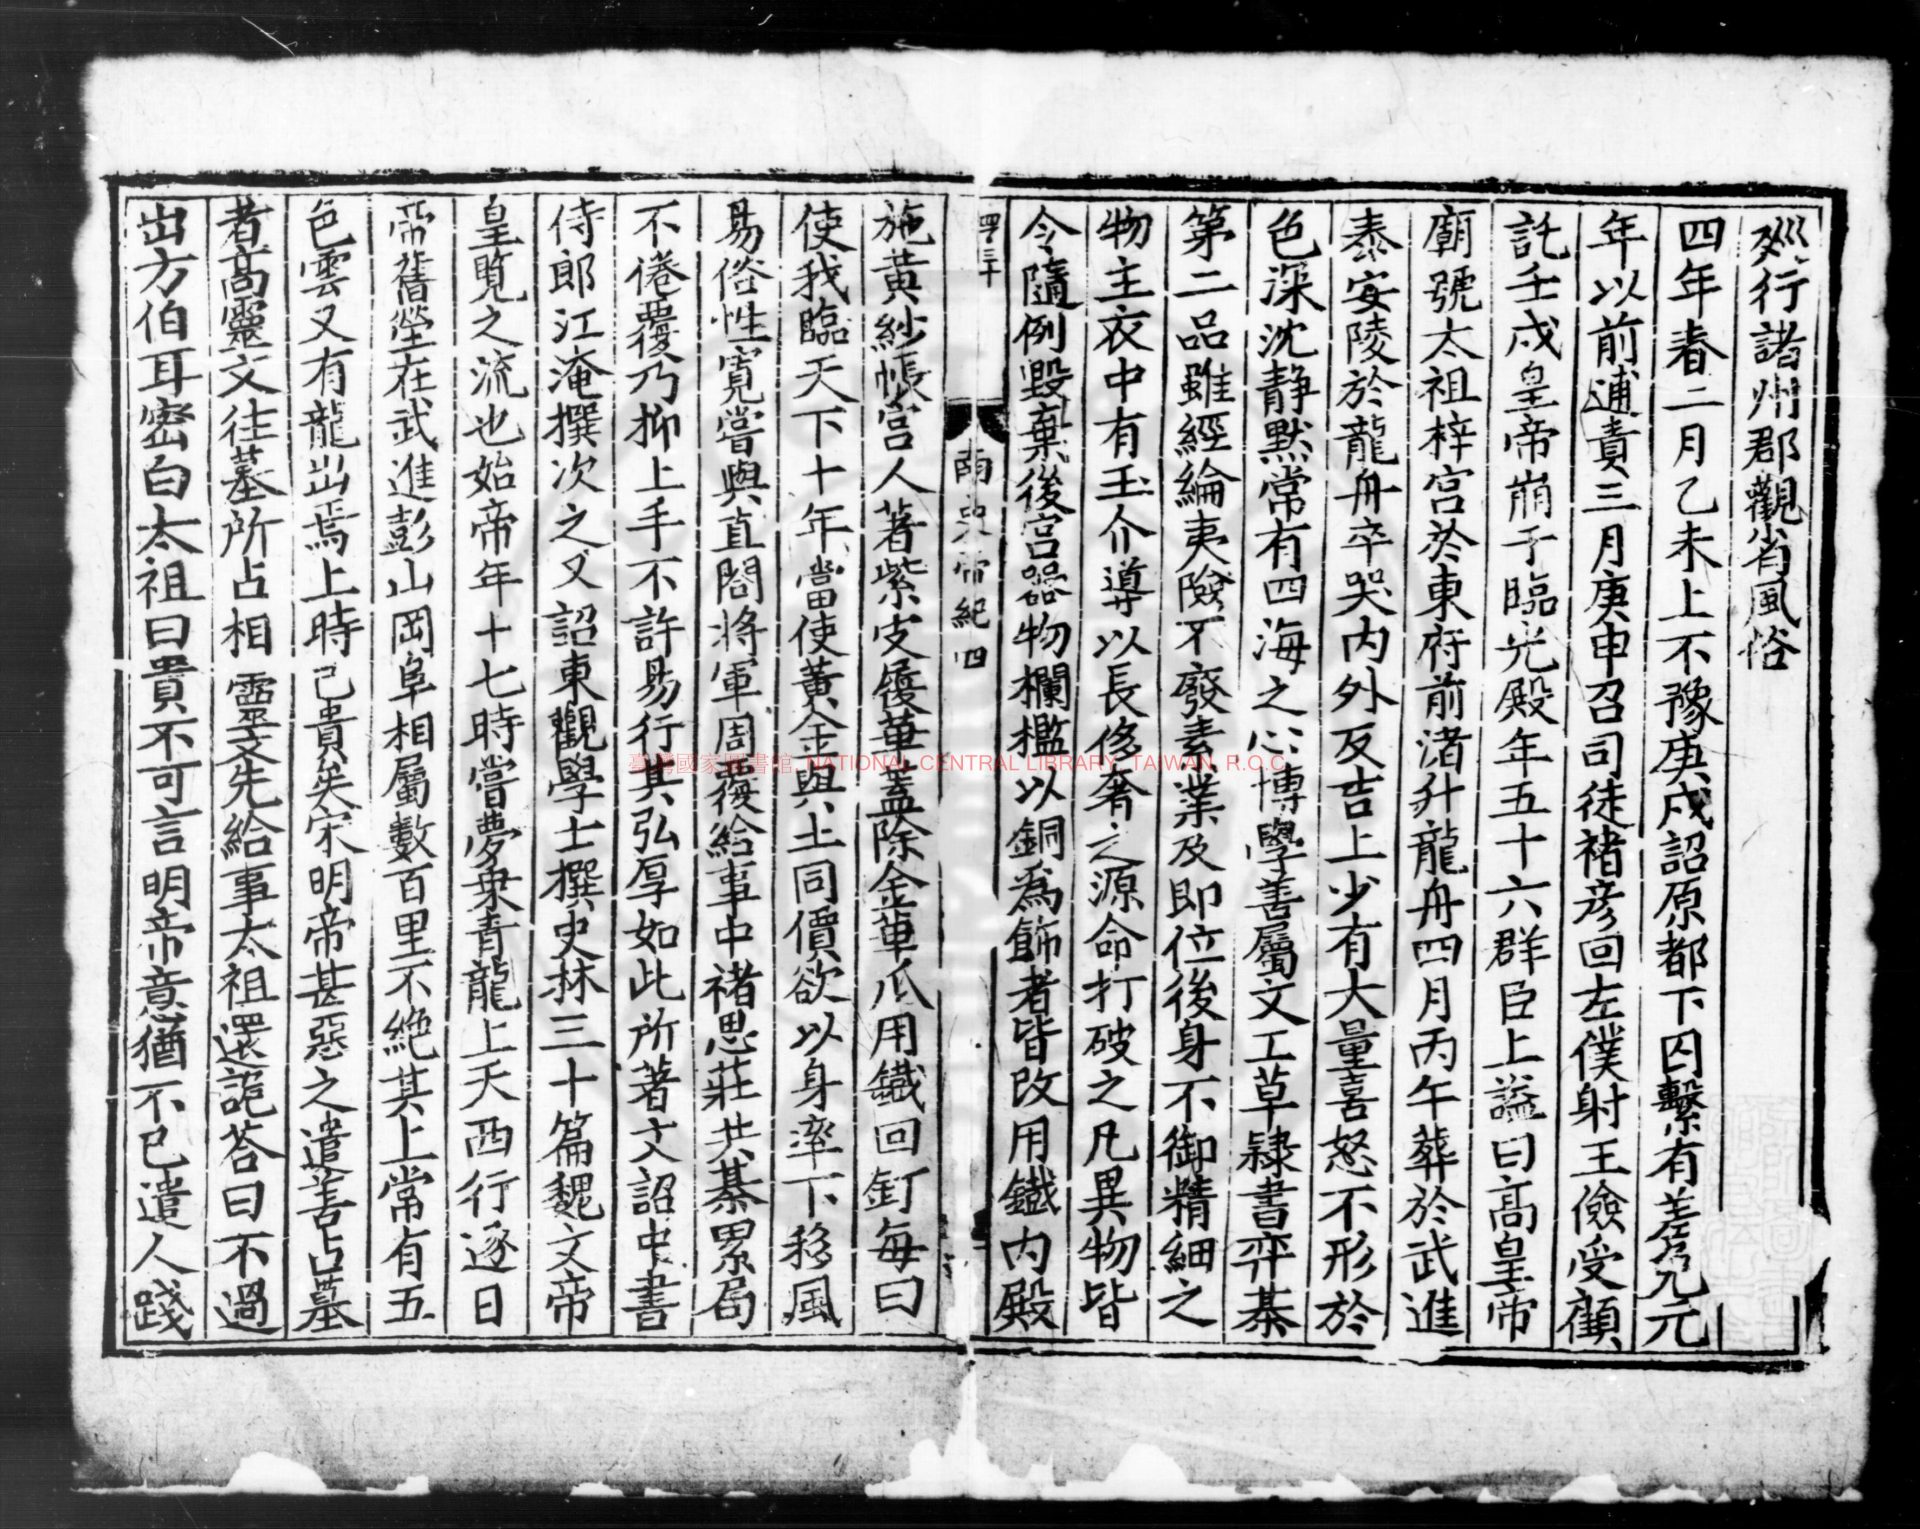 廵行諸州郡觀省風俗
四年春二月乙未上不豫庚戍詔原都下囚繫有差免元
年以前逋責三月庚申召司徒褚彦回左僕射王儉受顧
託壬戍皇帝崩于臨光殿年五十六群臣上謚曰高皇帝
廟號太祖梓宮於東府前渚升龍舟四月丙午葬於武進
泰安陵於龍舟卒哭内外反吉上少有大量喜怒不形於
色深沈靜黙常有四海之心博學善屬文工草隷書弈棊
第二品雖經綸夷險不廢素業及即位後身不御精細之
物主衣中有玉介導以長侈奢之源命打破之凡異物皆
令隨例毀棄後宮器物欄檻以銅爲飾者皆改用鐵内殿
南史帝紀四
施黄紗帳宮人著紫皮履華蓋除金華瓜用鐵回釘每曰
使我臨天下十年當使黄金與土同價欲以身率下移風
易俗性寛嘗與直閤將軍周覆給事中褚思莊共棊累局
不倦覆乃抑上手不許易行其弘厚如此所著文詔中書
侍郎江淹撰次之又詔東觀學士撰史林三十篇魏文帝
皇覽之流也始帝年十七時嘗夢乗青龍上天西行逐日
帝舊塋在武進彭山岡阜相屬數百里不絶其上常有五
色雲又有龍出焉上時已貴矣宋明帝甚惡之遣善占墓
者髙靈文往墓所占相靈文先給事太祖還詭荅曰不過
出方伯耳密白太祖曰貴不可言明帝意猶不已遣人踐
臺灣國家圖書館, NATIONAL CENTRAL LIBRARY, TAIWAN, R.O.C.